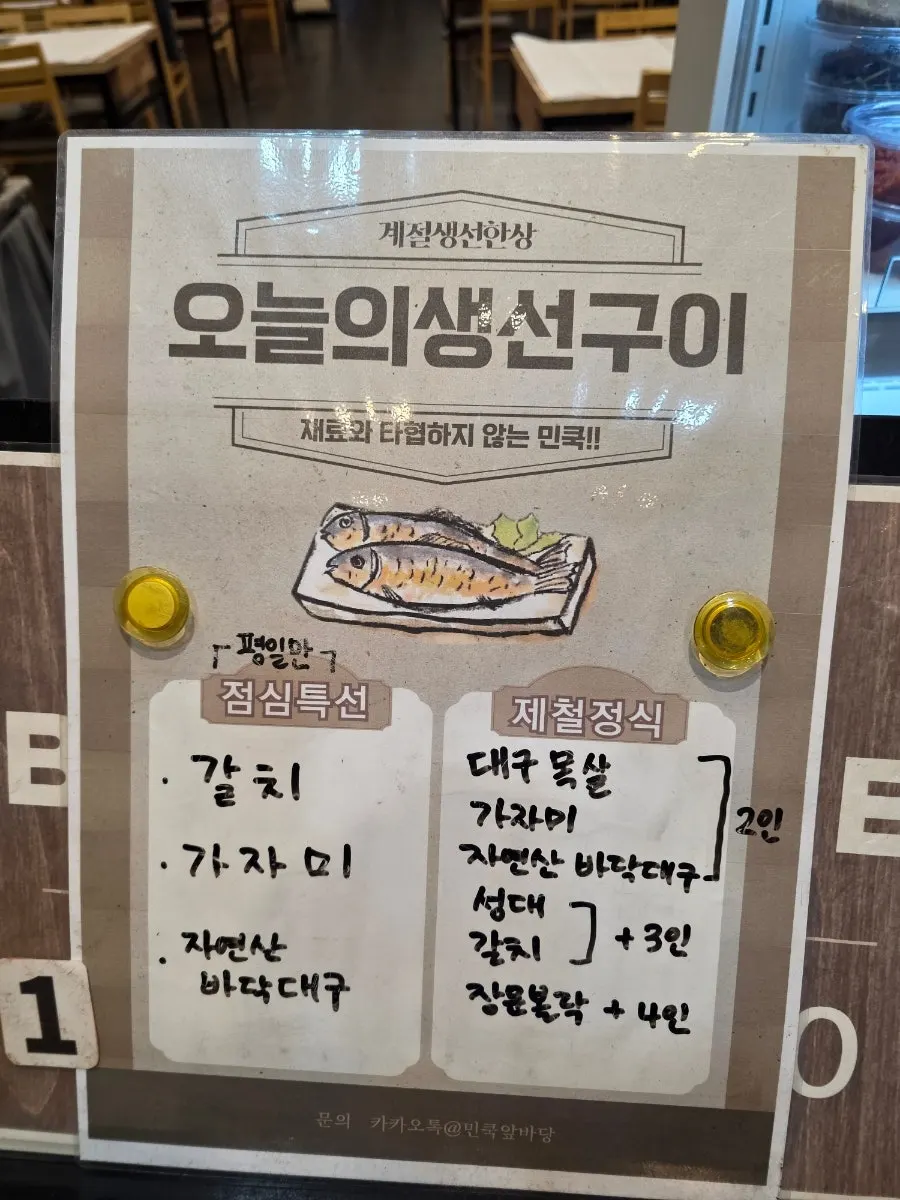 계절생선한상
오늘의생선구이
재료와 타협하지 않는 민쿡!!
「평일만」
점심특선
· 갈치
· 가자미
· 자연산
바닥대구
제철정식
대구 목살
가자미
자연산 바닥대구
2인
성대
갈치
+3인
장문볼락 +4인
문의 카카오톡@민쿡앞바당
B
1
E
O